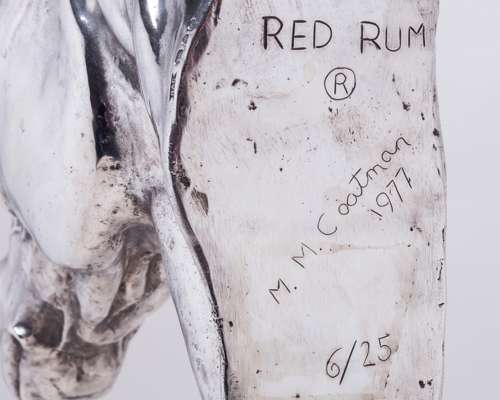 RED RUM
®
M. M. Coatman
1977
6/25